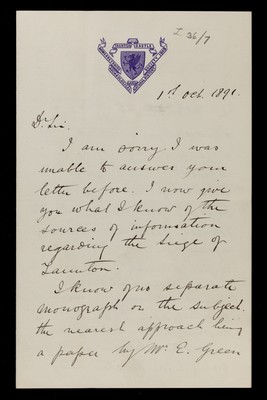 I 36/7
TAUNTON CASTLE
1st Oct. 1891.
Dr Sir,
I am sorry I was
unable to answer your
letter before. I now give
you what I know of the
sources of information
regarding the Siege of
Taunton.
I know of no separate
monograph on the subject.
the nearest approach being
a paper by Mr. E. Green